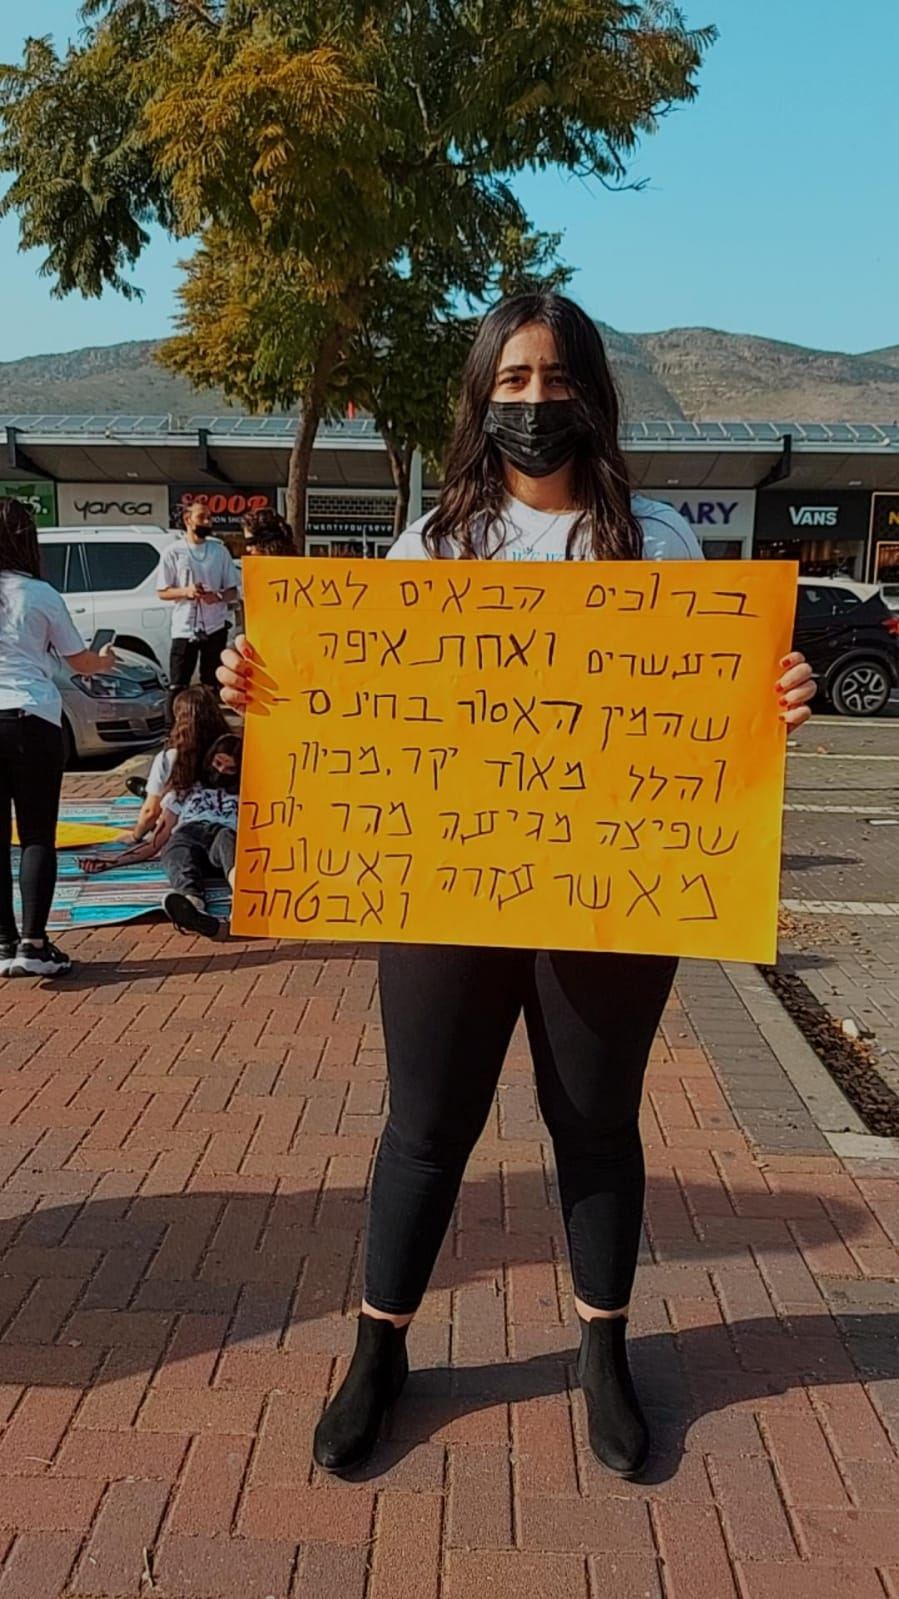 yanga
SCOOP
TWENTYFOURSEVEN
ARY
VANS
ברוכים הבאים למאה
העשרים ואחת איפה
שהמין האסור בחינם -
והלל מאוד יקר. מכיוון
שפיצה מגיעה מהר יותר
מאשר עזרה ראשונה
ואבטחה